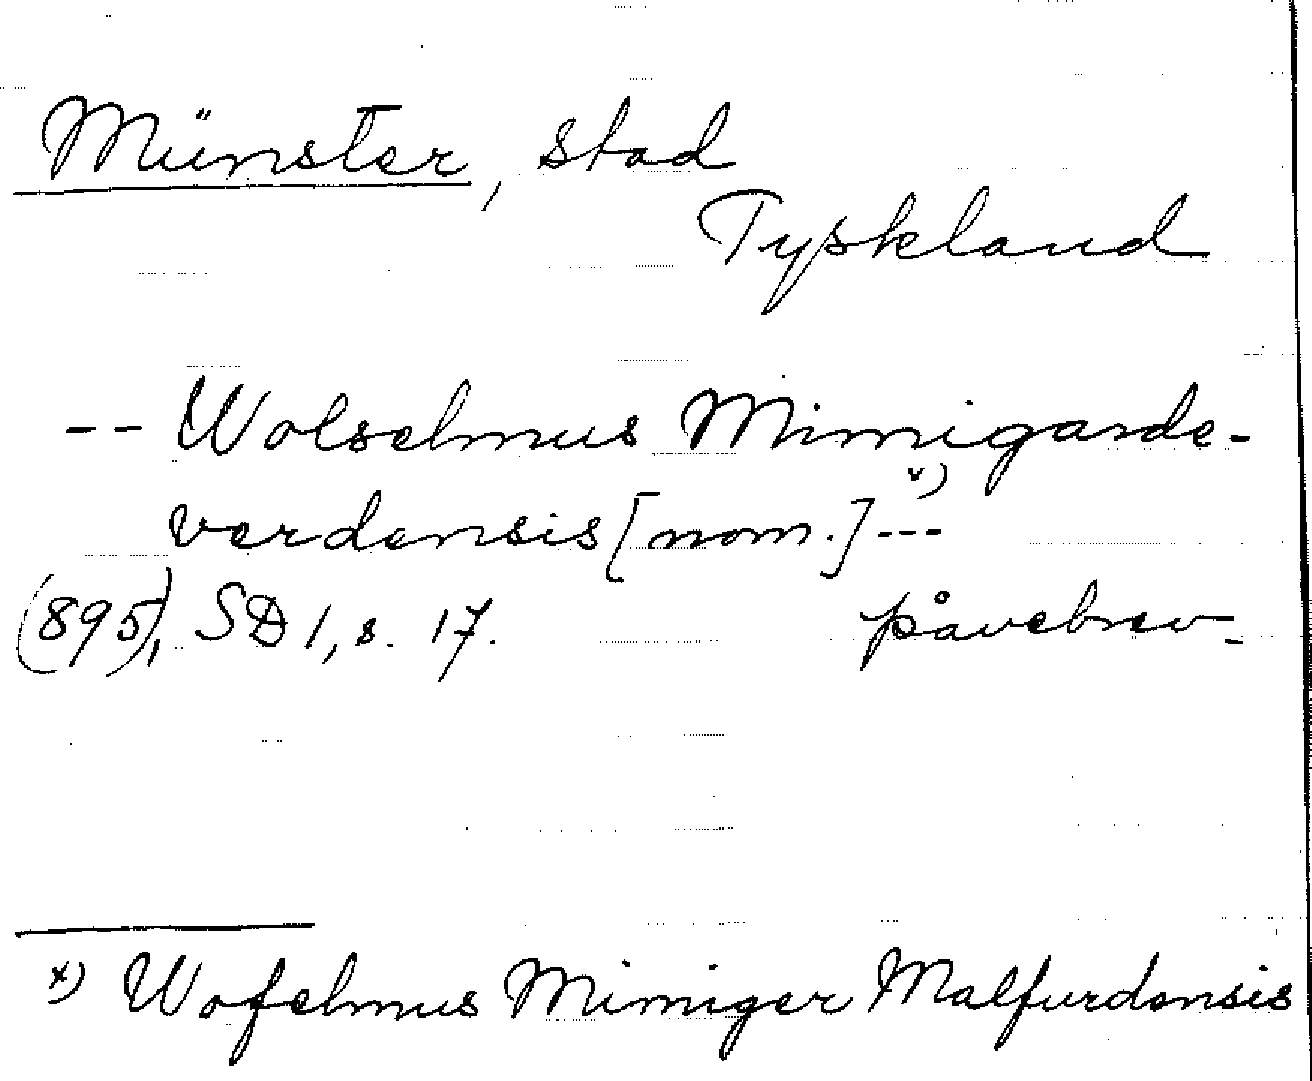 Münster, stad
Tyskland
-- Wolselmus Mimigarde-
verdensis [nom.] x) ---
(895), SD 1, s. 17. påvebrev.
x) Wofelmus Mimiger Malfurdensis